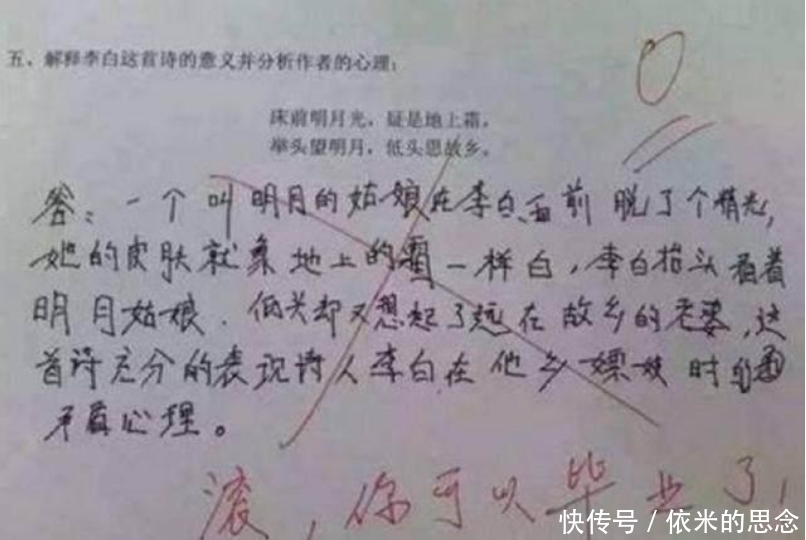 五、解释李白这首诗的意义并分析作者的心理：
床前明月光，疑是地上霜。
举头望明月，低头思故乡。
答：一个叫明月的姑娘在李白面前脱了个精光，
她的皮肤就象地上的霜一样白，李白抬头看着
明月姑娘．低头却又想起了远在故乡的老婆，这
首诗充分的表现诗人李白在他乡嫖妓时的
矛盾心理。
滚，你可以毕业了！
快传号／依米的思念